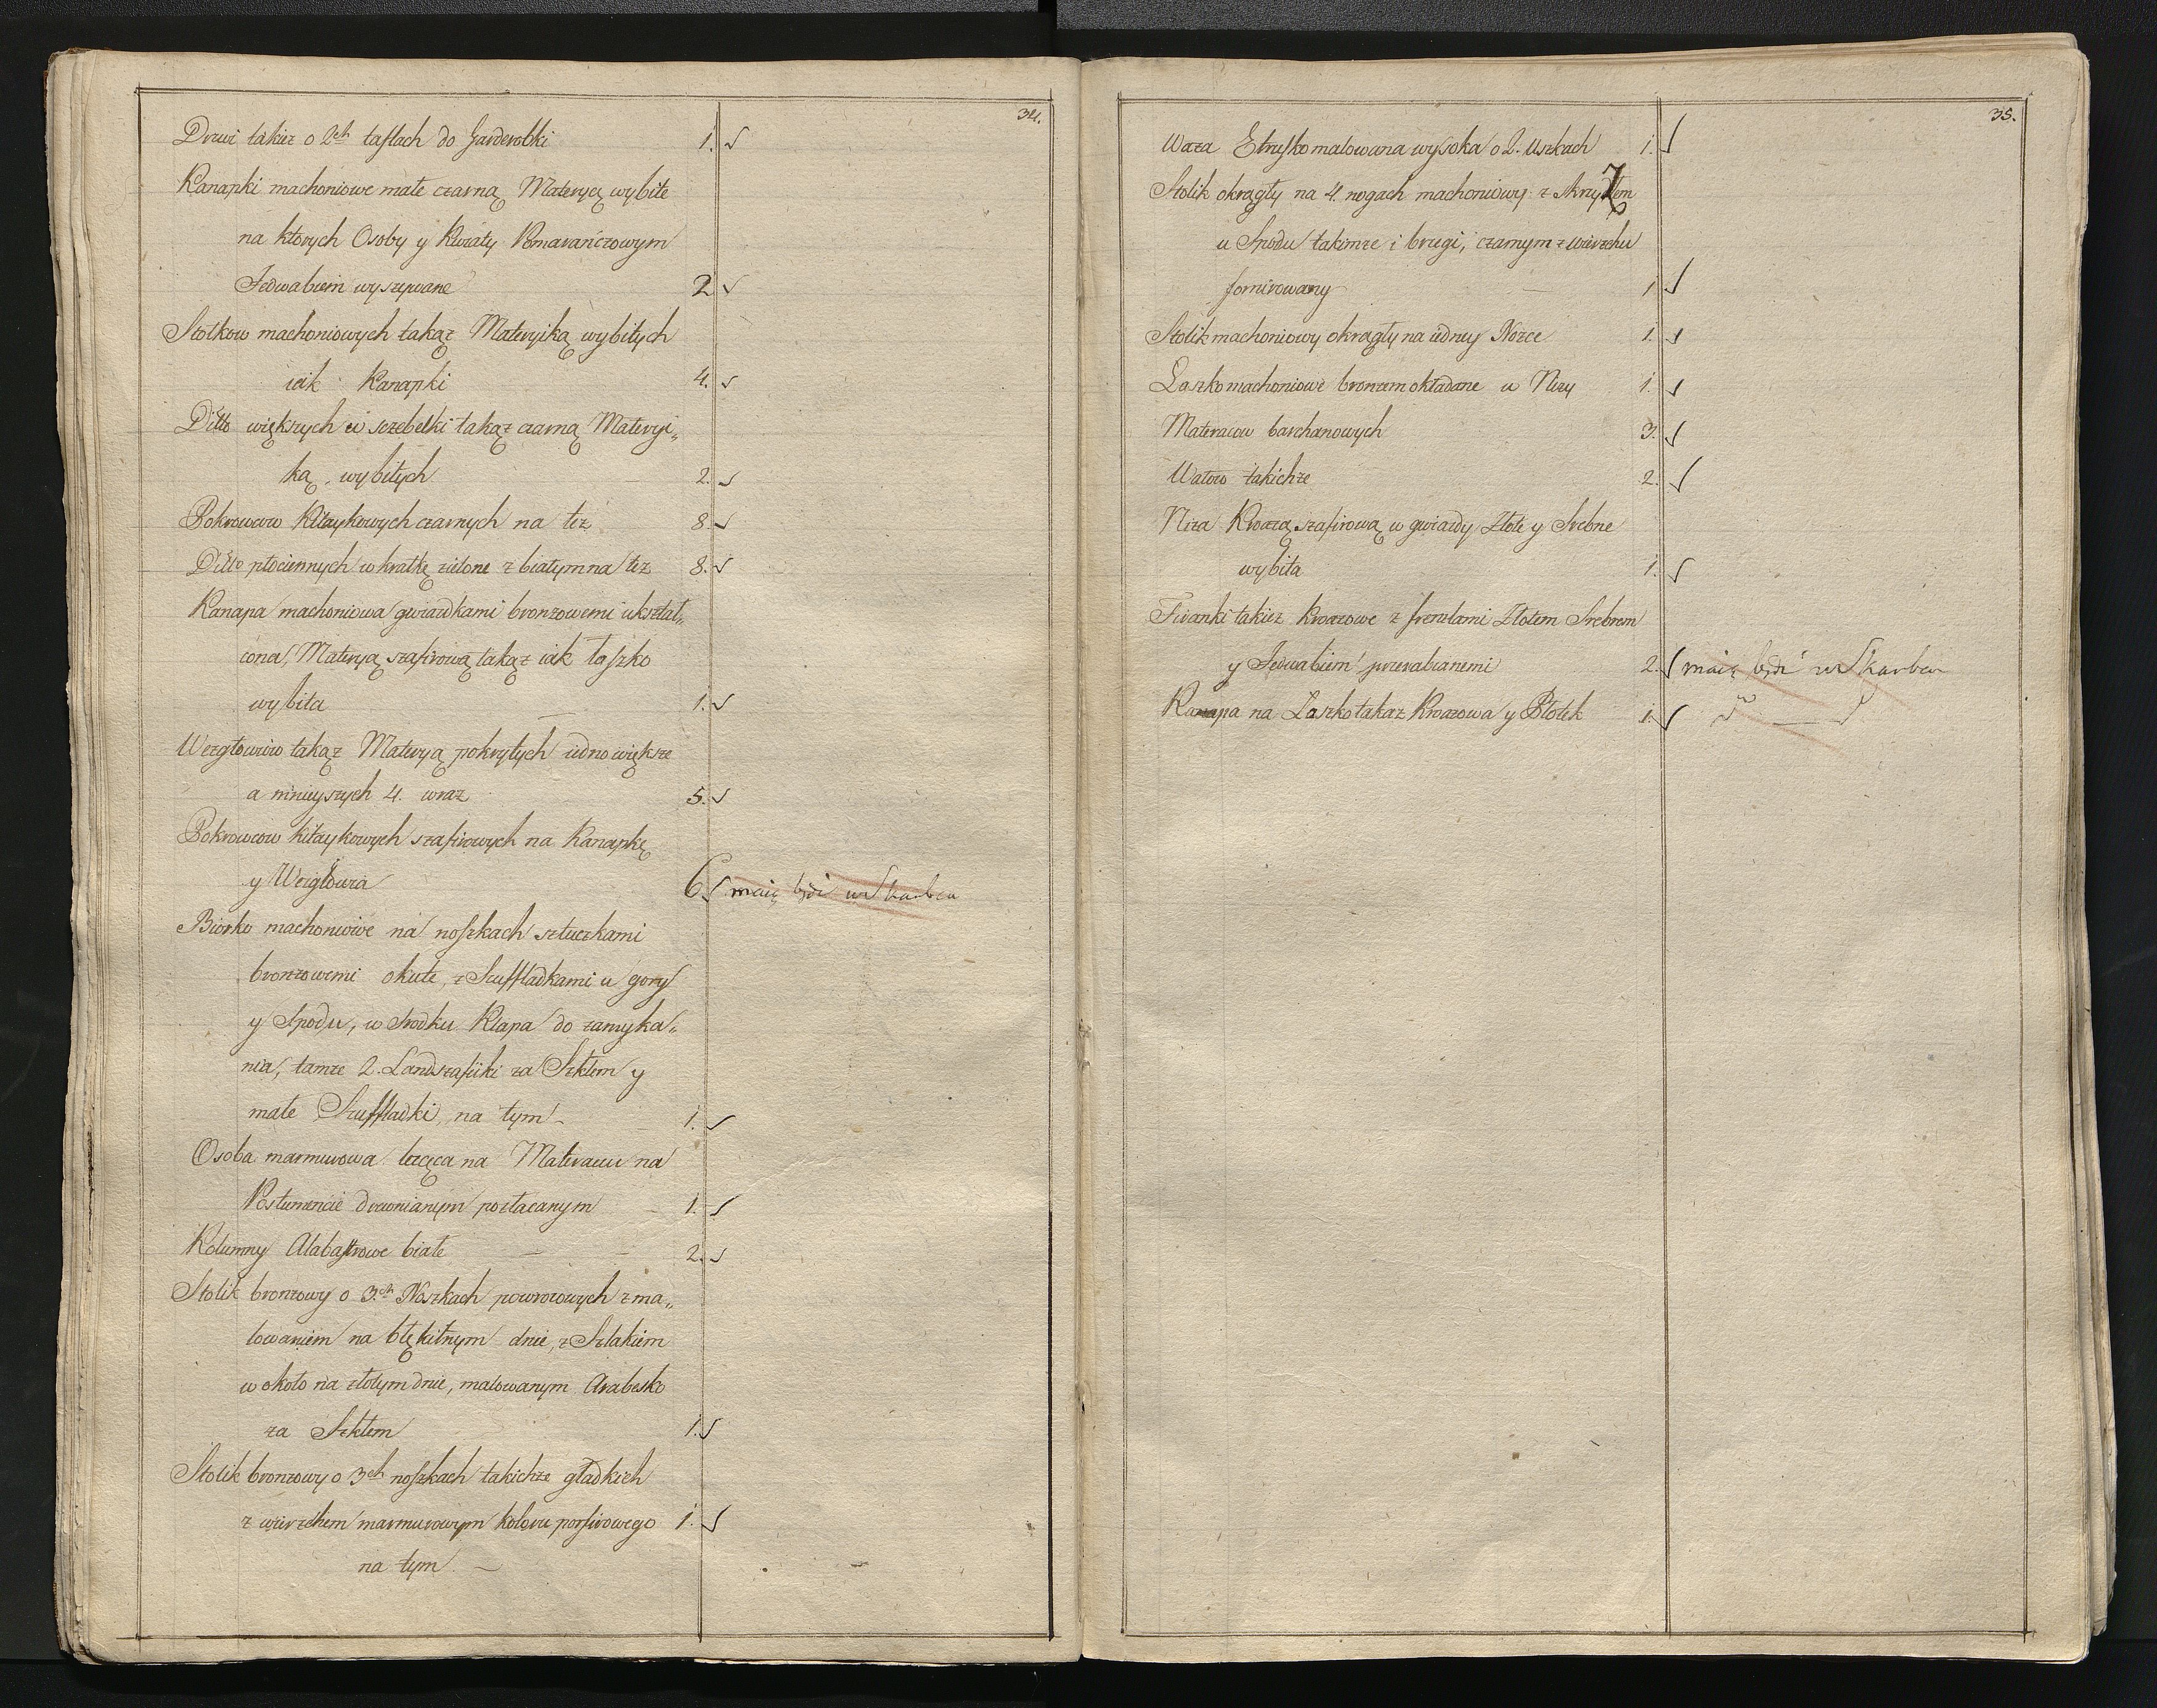 34.
Drzwi takież o 2ch taflach do Garderobki 1. √
Kanapki machoniowe małe czarną Materyą wybite
na ktorych Osoby y Kwiaty Pomarańczowym
Jedwabiem wyszywane 2 √
Stołkow machoniowych takąż Materyiką wybitych
iak Kanapki 4. √
Ditto większych w szebelki takąż czarną Materyi„
ką, wybitych 2. √
Pokrowcow Kitaykowych czarnych na też 8. √
Ditto płociennych w kratkę zielone z białym na też 8. √
Kanapa machoniowa gwiazdkami bronzowemi ukształ„
cona, Materyą szafirową takąż iak łoszko
wybita 1. √
Wezgłowiow takąż Materyą pokrytych iedno większe
a mnieyszych 4. wraz 5. √
Pokrowcow kitaykowych szafirowych na Kanapkę
y Wezgłowia 6 √ maią bydź w Skarbcu
Biorko machoniowe na noszkach sztuczkami
bronzowemi okute, z Szuffladkami u gory
y Spodu, w Srodku Klapa do zamyka„
nia, tamże 2. Landszafciki za Szkłem y
małe Szuffladki, na tym 1. √
Osoba marmurowa leżąca na Materacu na
Postumencie drewnianym pozłacanym 1. √
Kolumny Alabastrowe białe 2. √
Stolik bronzowy o 3ch Noszkach powrozowych z ma„
lowaniem na błękitnym dnie, z Szlakiem
w około na złotym dnie, malowanym Arabesko
za Szkłem 1. √
Stolik bronzowy o 3ch noszkach takichże gładkich
z wierzchem marmurowym koloru porfirowego 1. √
na tym
35.
Waza Etrusko malowana wysoka o 2. Uszkach 1. √
Stolik okrągły na 4. nogach machoniowy z Skrzydłem
u Spodu takimże i brzegi, czarnym z wierzchu
fornirowany 1 √
Stolik machoniowy okrągły na iedney Nozce 1. √
Łoszko machoniowe bronzem okładane w Niży 1. √
Materacow barchanowych 3. √
Wałow takichże 2. √
Niża Kroazą szafirową w gwiazdy Złote y Srebne
wybita 1. √
Firanki takież kroazowe z frenzlami Złotem Srebrem
y Jedwabiem przerabianemi 2. √ maią bydź w Skarbcu
Kanapa na Łoszko takaż Kroazowa y Płotek 1. √